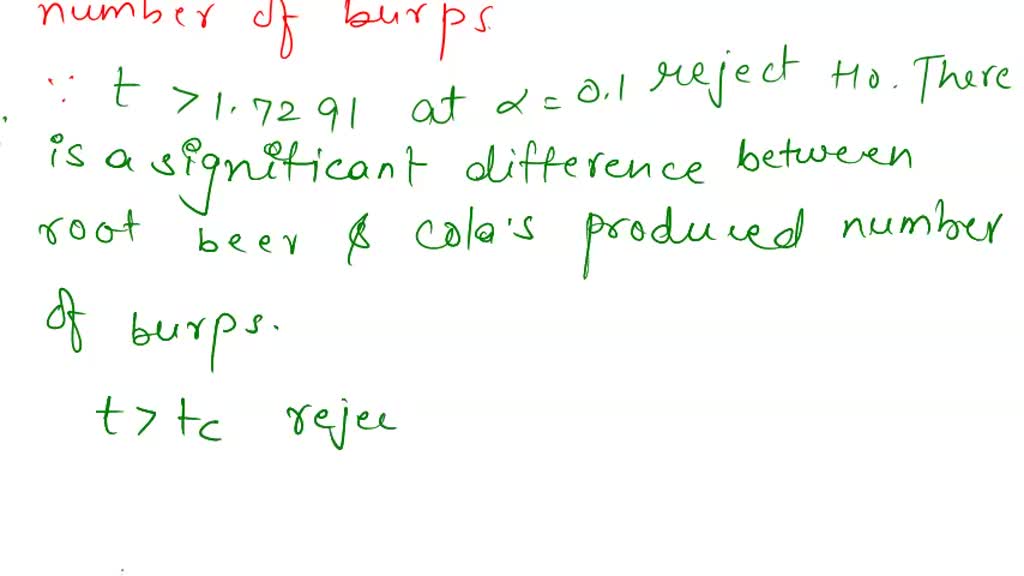 number of burps.
∵ t > 1.7291 at α = 0.1 reject Ho. There
is a significant difference between
root beer & cola's produced number
of burps.
t > tc rejec